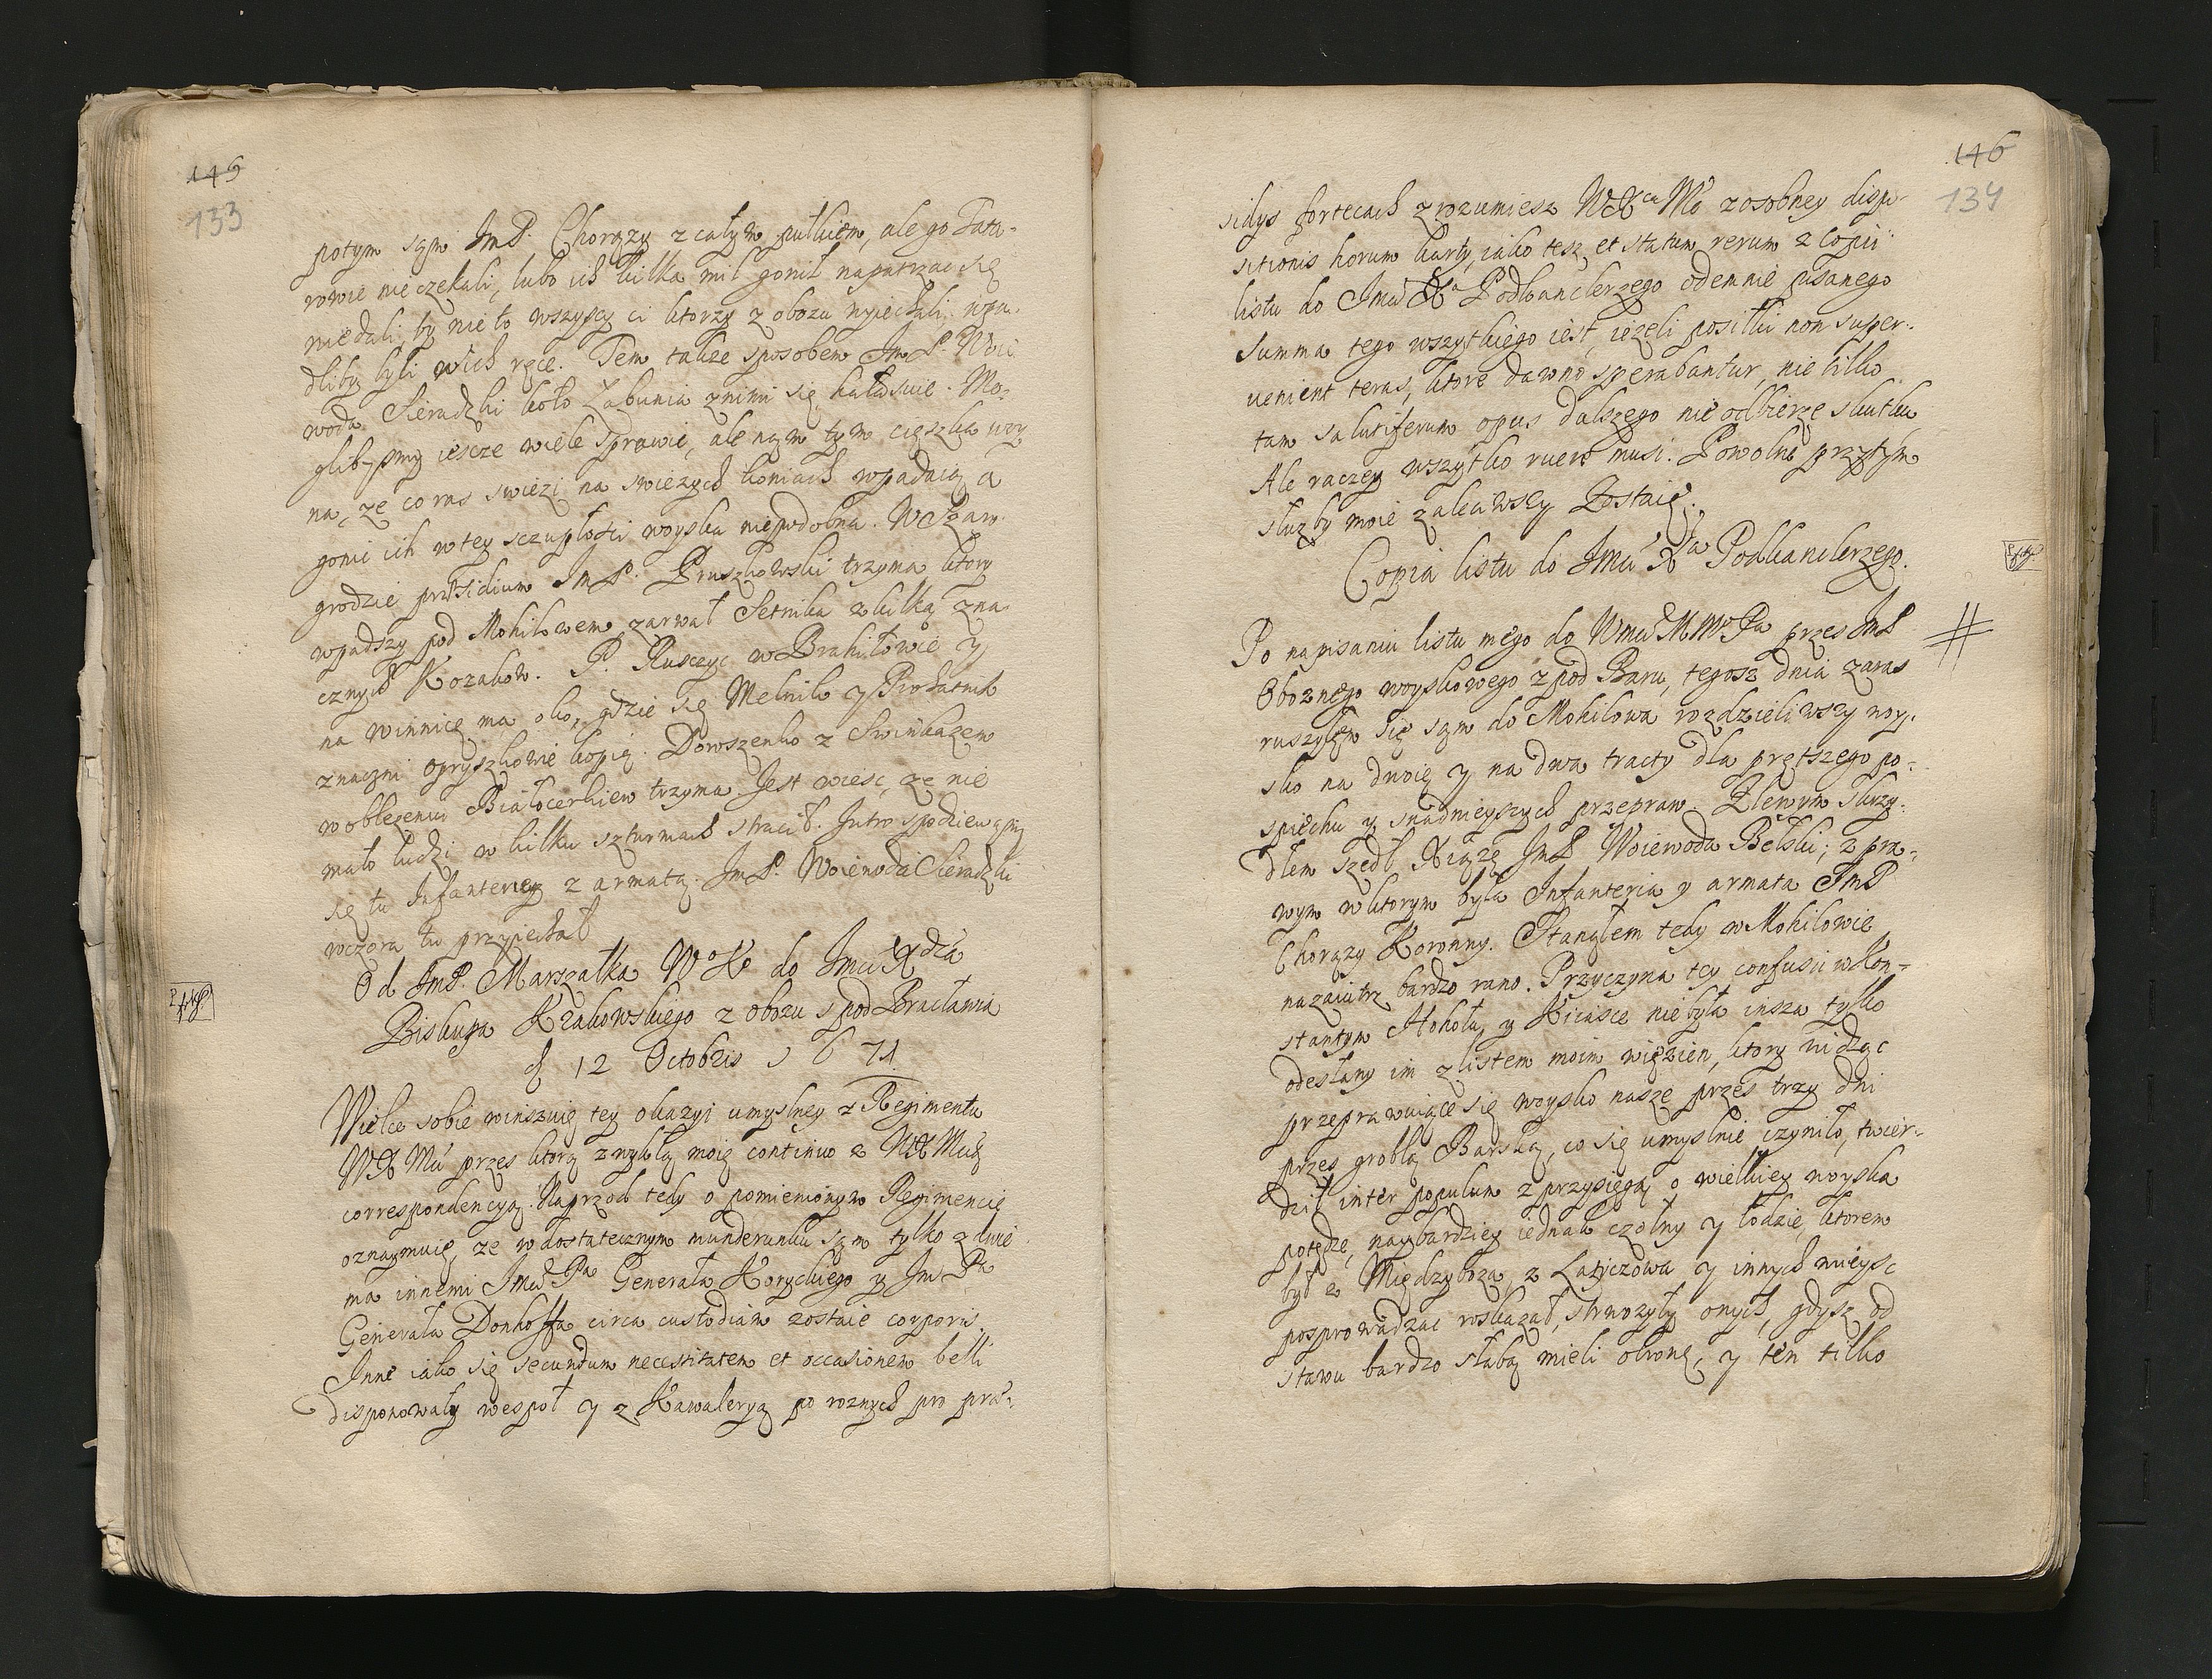 145
133
potym sąm JmP. Chorązy z całym pułkiem, ale go Tata-
rowie nie czekali, lubo ich kilka mil gonił napatrzac się
nie dali, by nie to wszyscy ci ktorzy z obozu wyiechali wpa-
dliby byli w ich ręce. Tem także sposobem JmP. Woie
woda Sieradzki koło Zabunia z nimi się hałasuie. Mo-
glibysmy iescze wiele sprawić, ale nąm tym cięszka woy
na, ze co ras swiezi na swiezych koniach wpadaią a
gonic ich w tey sczupłości woyska niepodobna. W Szaro-
grodzie præsidium JmP. Pruszkowski trzyma ktory
wpadszy pod Mohilowem zarwał Setnika z kilką zna-
cznych Kozakow. P. Ruszczyc w Brahiłowie y
na winnicę ma oko, gdzie się Melnik y Prohatnik
znaczni Opryszkowie kopią. Doroszenko z Swinkazem
w oblęzeniu Białocerkiew trzyma. Jest wieść, ze nie
mało ludzi w kilku szturmach stracił. Jutro spodziewąmy
się tu Infanteriey z armatą. JmP. Woiewoda Sieradzki
wczora tu przyiechał
Od JmP. Marszałka W° K° do Jmci Xdza
Biskupa Krakowskiego z obozu spod Bracławia
d 12 Octobris 1671
Wielce sobie winszuię tey okazyi umyslney z Regimentu
WX Mci przes ktorą zwykłą moię continuo z WX Mcią
correspondencyą. Naprzod tedy o pomienionym Regimencie
oznaymuię, ze w dostatecznym munderunku sąm tylko z dwie
ma innemi Jmci Pa Generała Koryckiego y Jm Pa
Generała Donhoffa circa custodiam zostaie corporis.
Inne iako się secundum necessitatem et occasionem belli
disponowały wespoł y z Kawaleryą po roznych pro præ-
146
134
sidys fortecach zrozumiesz WXca Mo z osobney dispo-
sitionis horum karty, iako tesz et statum rerum z Copii
listu do Jmci Xa Podkanclerzego odemnie pisanego
Summa tego wszytkiego iest, iezeli posiłki non super-
uenient teras, ktore dawno sperabantur, nie tilko
tam salutiferum opus dalszego nie odbierze skutku
Ale raczey wszytko ruere musi. Powolne przytym
słuzby moie zalecawszy Zostaię.
Copia listu do Jmci Xa Podkanclerzego.
Po napisaniu listu mego do Wmci M Mo Pa przes JmP
Oboznego woyskowego z pod Baru, tegosz dnia zaras
ruszyłęm się sąm do Mohilowa rozdzieliwszy woy-
sko na dwoię y na dwa tracty dla prętszego po-
spiechu y snadnieyszych przepraw. Z lewym skrzy-
dłem szedł Xiąze JmP Woiewoda Bełski; z pra-
wym w ktorym była Infanteria y armata JmP
Chorązy Koronny. Stanąłem tedy w Mohilowie
nazaiutrz bardzo rano. Przyczyna tey confusii w Kon-
stantym Hohołu y Kiiasce nie była insza tylko
odesłany im z listem moim więzien, ktory widząc
przeprawuiące się woysko nasze przes trzy dni
przes groblą Barską, co się umyslnie czyniło, twier-
dził inter populum z przysięgą o wielkiey woyska
potędze, naybardziey iednak czołny y łodzie, ktorem
był z Międzyboza, z Latyczowa y innych mieysc
posprowadzac roskazał, strwozyły onych, gdysz od
stawu bardzo słabą mieli obronę, y ten tilko